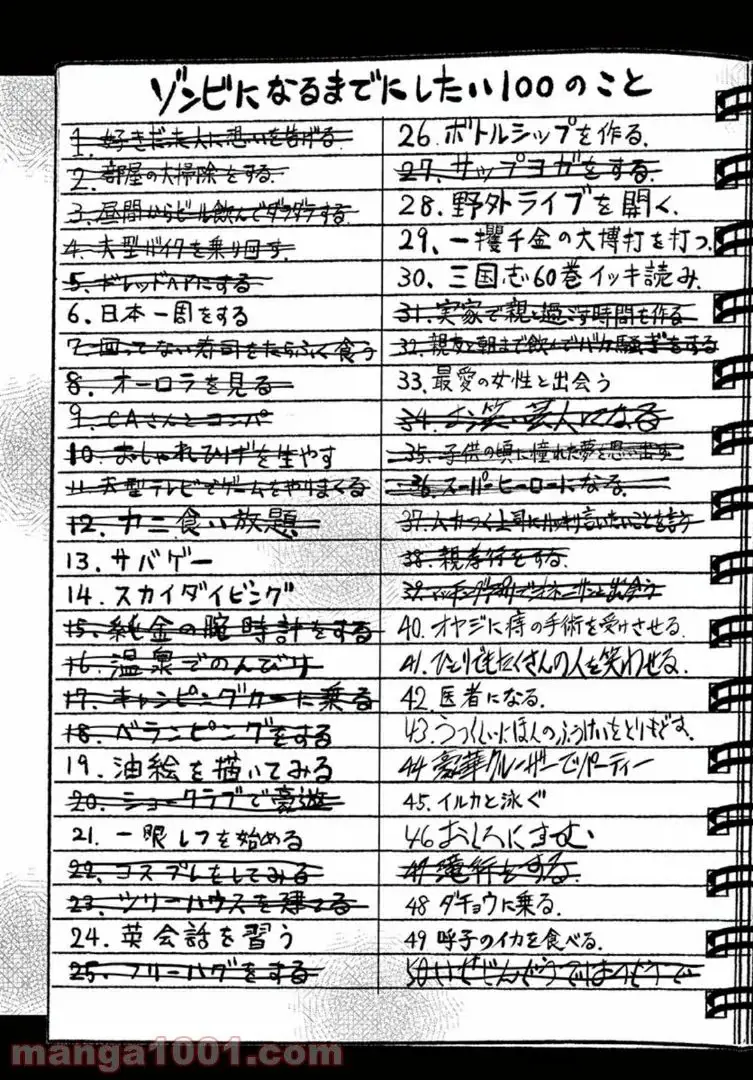 ゾンビになるまでにしたい100のこと
1. 好きだった人に想いを告げる.
2. 部屋の大掃除をする.
3. 昼間からビール飲んでダラダラする
4. 大型バイクを乗り回す
5. ドレッドヘアにする
6. 日本一周をする
7. 回ってない寿司をたらふく食う
8. オーロラを見る
9. CAさんとコンパ
10. おしゃれひげを生やす
11. 大型テレビでゲームをやりまくる
12. カニ食い放題
13. サバゲー
14. スカイダイビング
15. 純金の腕時計をする
16. 温泉でのんびり
17. キャンピングカーに乗る
18. ベランピングをする
19. 油絵を描いてみる
20. ショークラブで豪遊
21. 一眼レフを始める
22. コスプレをしてみる
23. ツリーハウスを建てる
24. 英会話を習う
25. フリーハグをする
26. ボトルシップを作る.
27. サップヨガをする.
28. 野外ライブを開く.
29. 一攫千金の大博打を打つ.
30. 三国志60巻イッキ読み.
31. 実家で親と過ごす時間を作る
32. 親友と朝まで飲んでバカ騒ぎをする
33. 最愛の女性と出会う
34. お笑い芸人になる
35. 子供の頃に憧れた夢を思い出す
36. スーパーヒーローになる.
37. ムカつく上司にハッキリ言いたいことを言う
38. 親孝行をする.
39.
40. オヤジに痔の手術を受けさせる.
41. ひとりでもたくさんの人を笑わせる.
42. 医者になる.
43. うつくしいにほんのふうけいをとりもどす.
44. 豪華クルーザーでパーティー
45. イルカと泳ぐ
46 おしろにすむ
47 滝行をする.
48 ダチョウに乗る.
49 呼子のイカを食べる.
50
manga1001.com